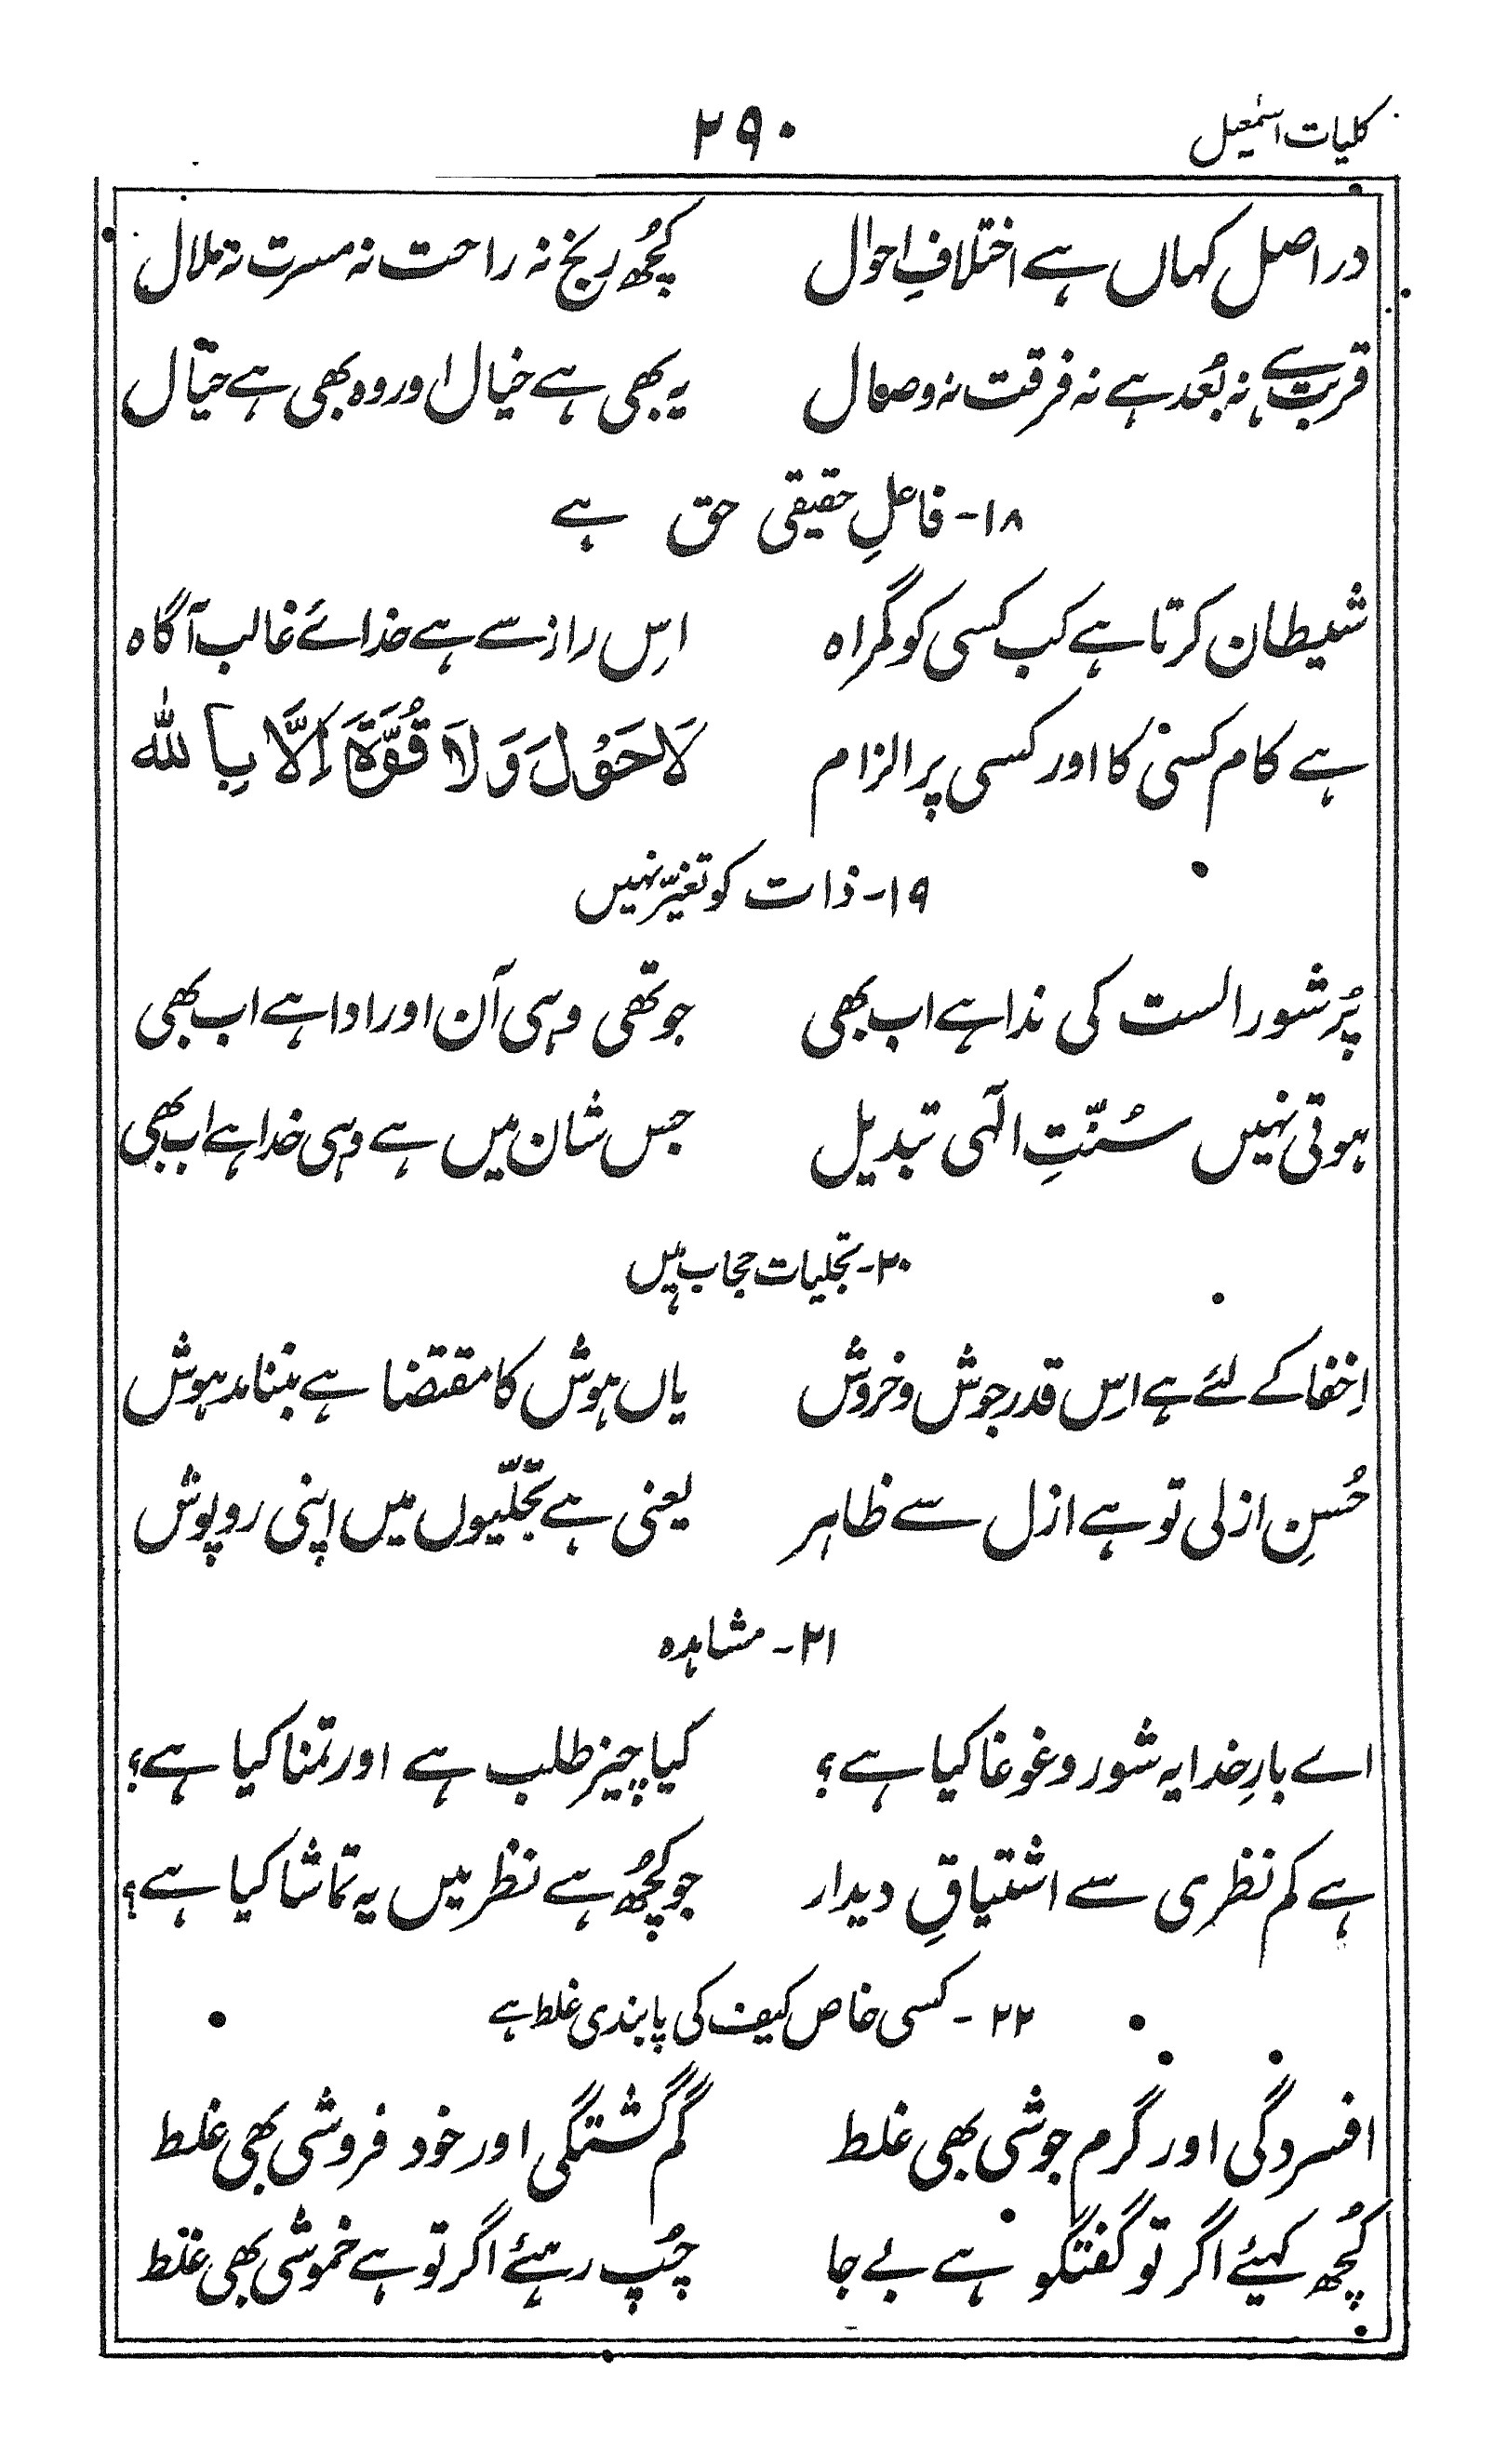 کلیات اسمٰعیل ۲۹۰
در اصل کہاں ہے اختلافِ احوال کچُھ رنج نہ راحت نہ مسرت نہ ملال
قربت ہے نہ بُعد ہے نہ فرقت نہ وصال یہ بھی ہے خیال اور وہ بھی ہے خیال
۱۸- فاعلِ حقیقی حق ہے
شیطان کرتا ہے کب کسی کو گمراہ اِس راز سے ہے خدائے غالب آگاہ
ہے کام کسی کا اور کسی پر الزام لَا حَوْلَ وَ لَا قُوَّةَ اِلَّا بِاللہ
۱۹- ذات کو تغیّر نہیں
پُر شور الست کی ندا ہے اب بھی جو تھی وہی آن اور ادا ہے اب بھی
ہوتی نہیں سُنّتِ الٓہی تبدیل جس شان میں ہے وہی خدا ہے اب بھی
۲۰- تجلیات حجاب ہیں
اِخفا کے لئے ہے اِس قدر جوش و خروش یاں ہوش کا مقتضا ہے بننا مدہوش
حُسنِ ازلی تو ہے ازل سے ظاہر یعنی ہے تجلّیوں میں اپنی روپوش
۲۱- مشاہدہ
اے بارِ خدا یہ شور و غوغا کیا ہے؟ کیا چیز طلب ہے اور تمنا کیا ہے؟
ہے کم نظری سے اشتیاقِ دیدار جو کچُھ ہے نظر میں یہ تماشا کیا ہے؟
۲۲- کسی خاص کیف کی پابندی غلط ہے
افسردگی اور گرم جوشی بھی غلط گم گشتگی اور خود فروشی بھی غلط
کچُھ کہئے اگر تو گفتگو ہے بے جا چُپ رہئے اگر تو ہے خموشی بھی غلط